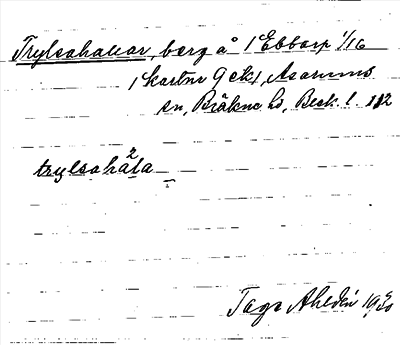 Trylsahallar, berg å 1 Ebbarp 1/16
(kartor 9 ek), Asarums
sn, Bräkne hd, Blek. l. 182
trylsahä²la
Tage Ahldén 1930